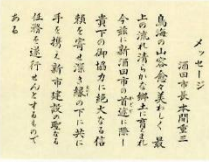 メッセージ
酒田市長 本間重三
鳥海の山容愈々美わしく、最
上の流れ清らかな郷土に育まれ
今茲に新酒田市の首途に際し
貴下の御協力に絶大なる信
頼を寄せ深き縁の下に共に
手を携え新市建設の聖なる
任務を遂行せんとするもので
ある